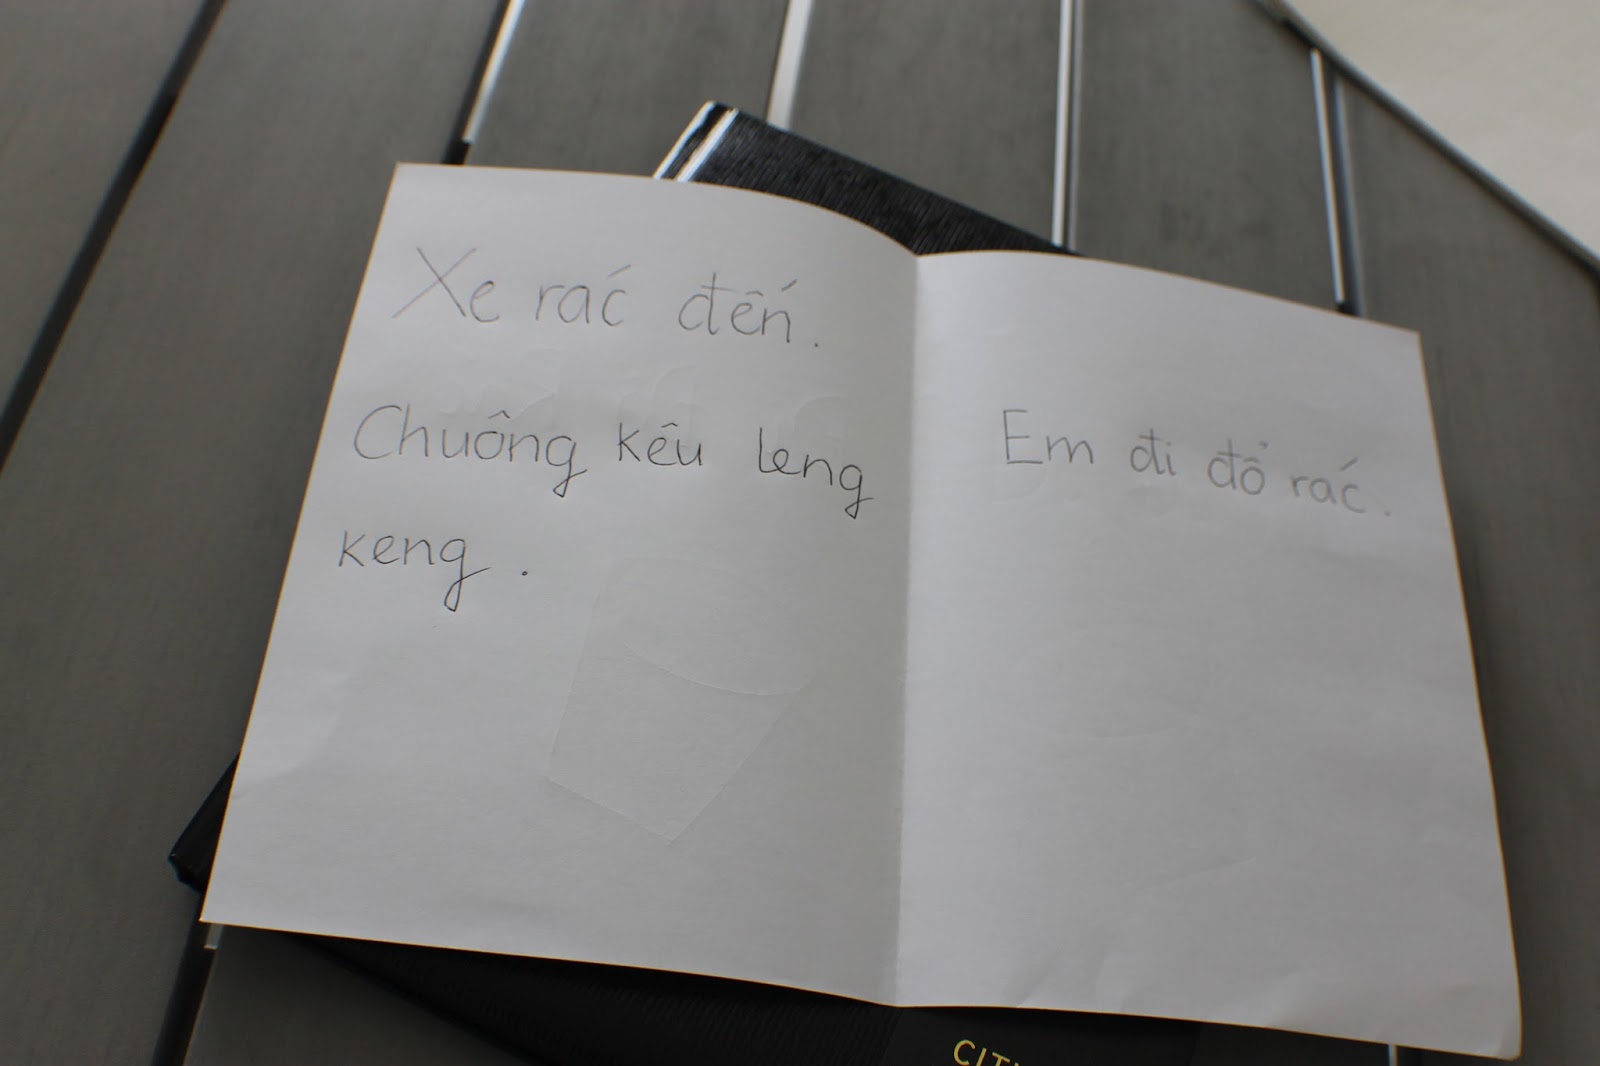 Xe rác đến.
Chuông kêu leng
keng.
Em đi đổ rác.